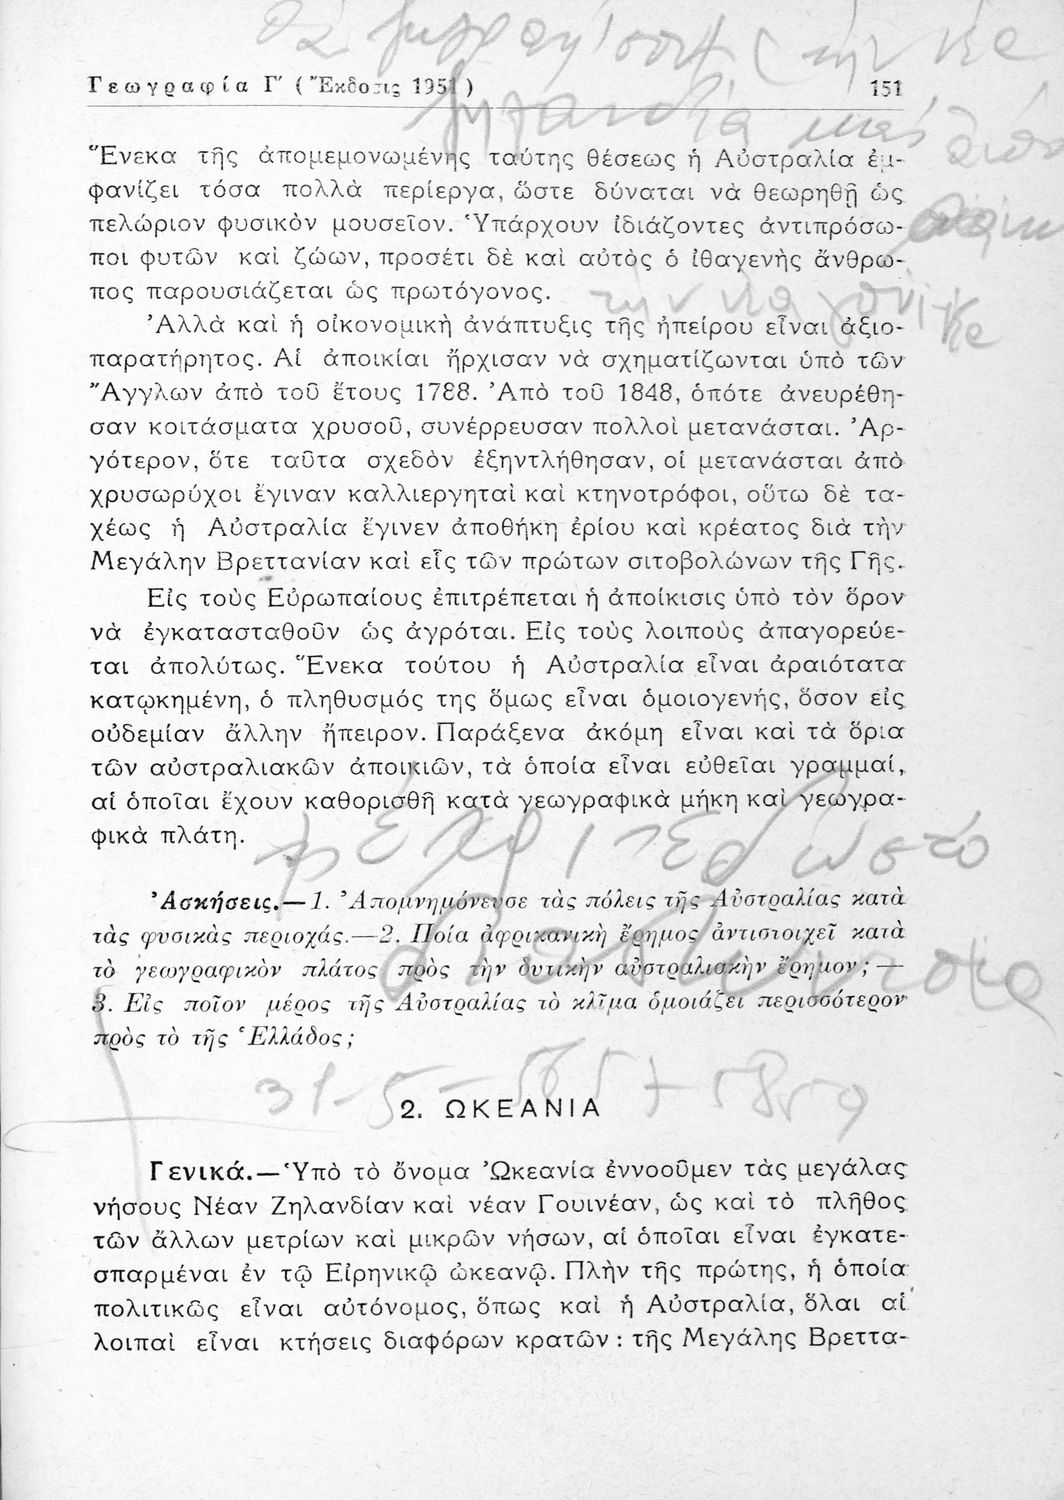 Γεωγραφία Γ′ (Ἔκδοσις 1951)
151
Ἕνεκα τῆς ἀπομεμονωμένης ταύτης θέσεως ἡ Αὐστραλία ἐμ-
φανίζει τόσα πολλὰ περίεργα, ὥστε δύναται νὰ θεωρηθῇ ὡς
πελώριον φυσικὸν μουσεῖον. Ὑπάρχουν ἰδιάζοντες ἀντιπρόσω-
ποι φυτῶν καὶ ζώων, προσέτι δὲ καὶ αὐτὸς ὁ ἰθαγενὴς ἄνθρω-
πος παρουσιάζεται ὡς πρωτόγονος.
Ἀλλὰ καὶ ἡ οἰκονομικὴ ἀνάπτυξις τῆς ἠπείρου εἶναι ἀξιο-
παρατήρητος. Αἱ ἀποικίαι ἤρχισαν νὰ σχηματίζωνται ὑπὸ τῶν
Ἄγγλων ἀπὸ τοῦ ἔτους 1788. Ἀπὸ τοῦ 1848, ὁπότε ἀνευρέθη-
σαν κοιτάσματα χρυσοῦ, συνέρρευσαν πολλοὶ μετανάσται. Ἀρ-
γότερον, ὅτε ταῦτα σχεδὸν ἐξηντλήθησαν, οἱ μετανάσται ἀπὸ
χρυσωρύχοι ἔγιναν καλλιεργηταὶ καὶ κτηνοτρόφοι, οὕτω δὲ τα-
χέως ἡ Αὐστραλία ἔγινεν ἀποθήκη ἐρίου καὶ κρέατος διὰ τὴν
Μεγάλην Βρεττανίαν καὶ εἷς τῶν πρώτων σιτοβολώνων τῆς Γῆς.
Εἰς τοὺς Εὐρωπαίους ἐπιτρέπεται ἡ ἀποίκισις ὑπὸ τὸν ὅρον
νὰ ἐγκατασταθοῦν ὡς ἀγρόται. Εἰς τοὺς λοιποὺς ἀπαγορεύε-
ται ἀπολύτως. Ἕνεκα τούτου ἡ Αὐστραλία εἶναι ἀραιότατα
κατῳκημένη, ὁ πληθυσμός της ὅμως εἶναι ὁμοιογενής, ὅσον εἰς
οὐδεμίαν ἄλλην ἤπειρον. Παράξενα ἀκόμη εἶναι καὶ τὰ ὅρια
τῶν αὐστραλιακῶν ἀποικιῶν, τὰ ὁποία εἶναι εὐθεῖαι γραμμαί,
αἱ ὁποῖαι ἔχουν καθορισθῆ κατὰ γεωγραφικὰ μήκη καὶ γεωγρα-
φικὰ πλάτη.
Ἀσκήσεις.—1. Ἀπομνημόνευσε τὰς πόλεις τῆς Αὐστραλίας κατὰ
τὰς φυσικὰς περιοχάς.—2. Ποία ἀφρικανικὴ ἔρημος ἀντιστοιχεῖ κατὰ
τὸ γεωγραφικὸν πλάτος πρὸς τὴν δυτικὴν αὐστραλιακὴν ἔρημον;—
3. Εἰς ποῖον μέρος τῆς Αὐστραλίας τὸ κλῖμα ὁμοιάζει περισσότερον
πρὸς τὸ τῆς Ἑλλάδος;
2. ΩΚΕΑΝΙΑ
Γενικά.—Ὑπὸ τὸ ὄνομα Ὠκεανία ἐννοοῦμεν τὰς μεγάλας
νήσους Νέαν Ζηλανδίαν καὶ νέαν Γουινέαν, ὡς καὶ τὸ πλῆθος
τῶν ἄλλων μετρίων καὶ μικρῶν νήσων, αἱ ὁποῖαι εἶναι ἐγκατε-
σπαρμέναι ἐν τῷ Εἰρηνικῷ ὠκεανῷ. Πλὴν τῆς πρώτης, ἡ ὁποία
πολιτικῶς εἶναι αὐτόνομος, ὅπως καὶ ἡ Αὐστραλία, ὅλαι αἱ
λοιπαὶ εἶναι κτήσεις διαφόρων κρατῶν : τῆς Μεγάλης Βρεττα-